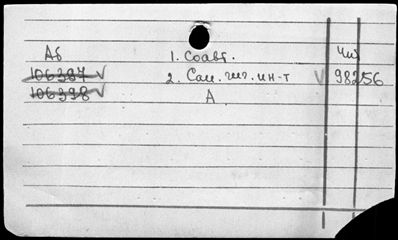 Аб 1. Соавт. Чит
106387 ✓ 2. Сан. гиг. ин-т ✓ 98256
106398 ✓ А